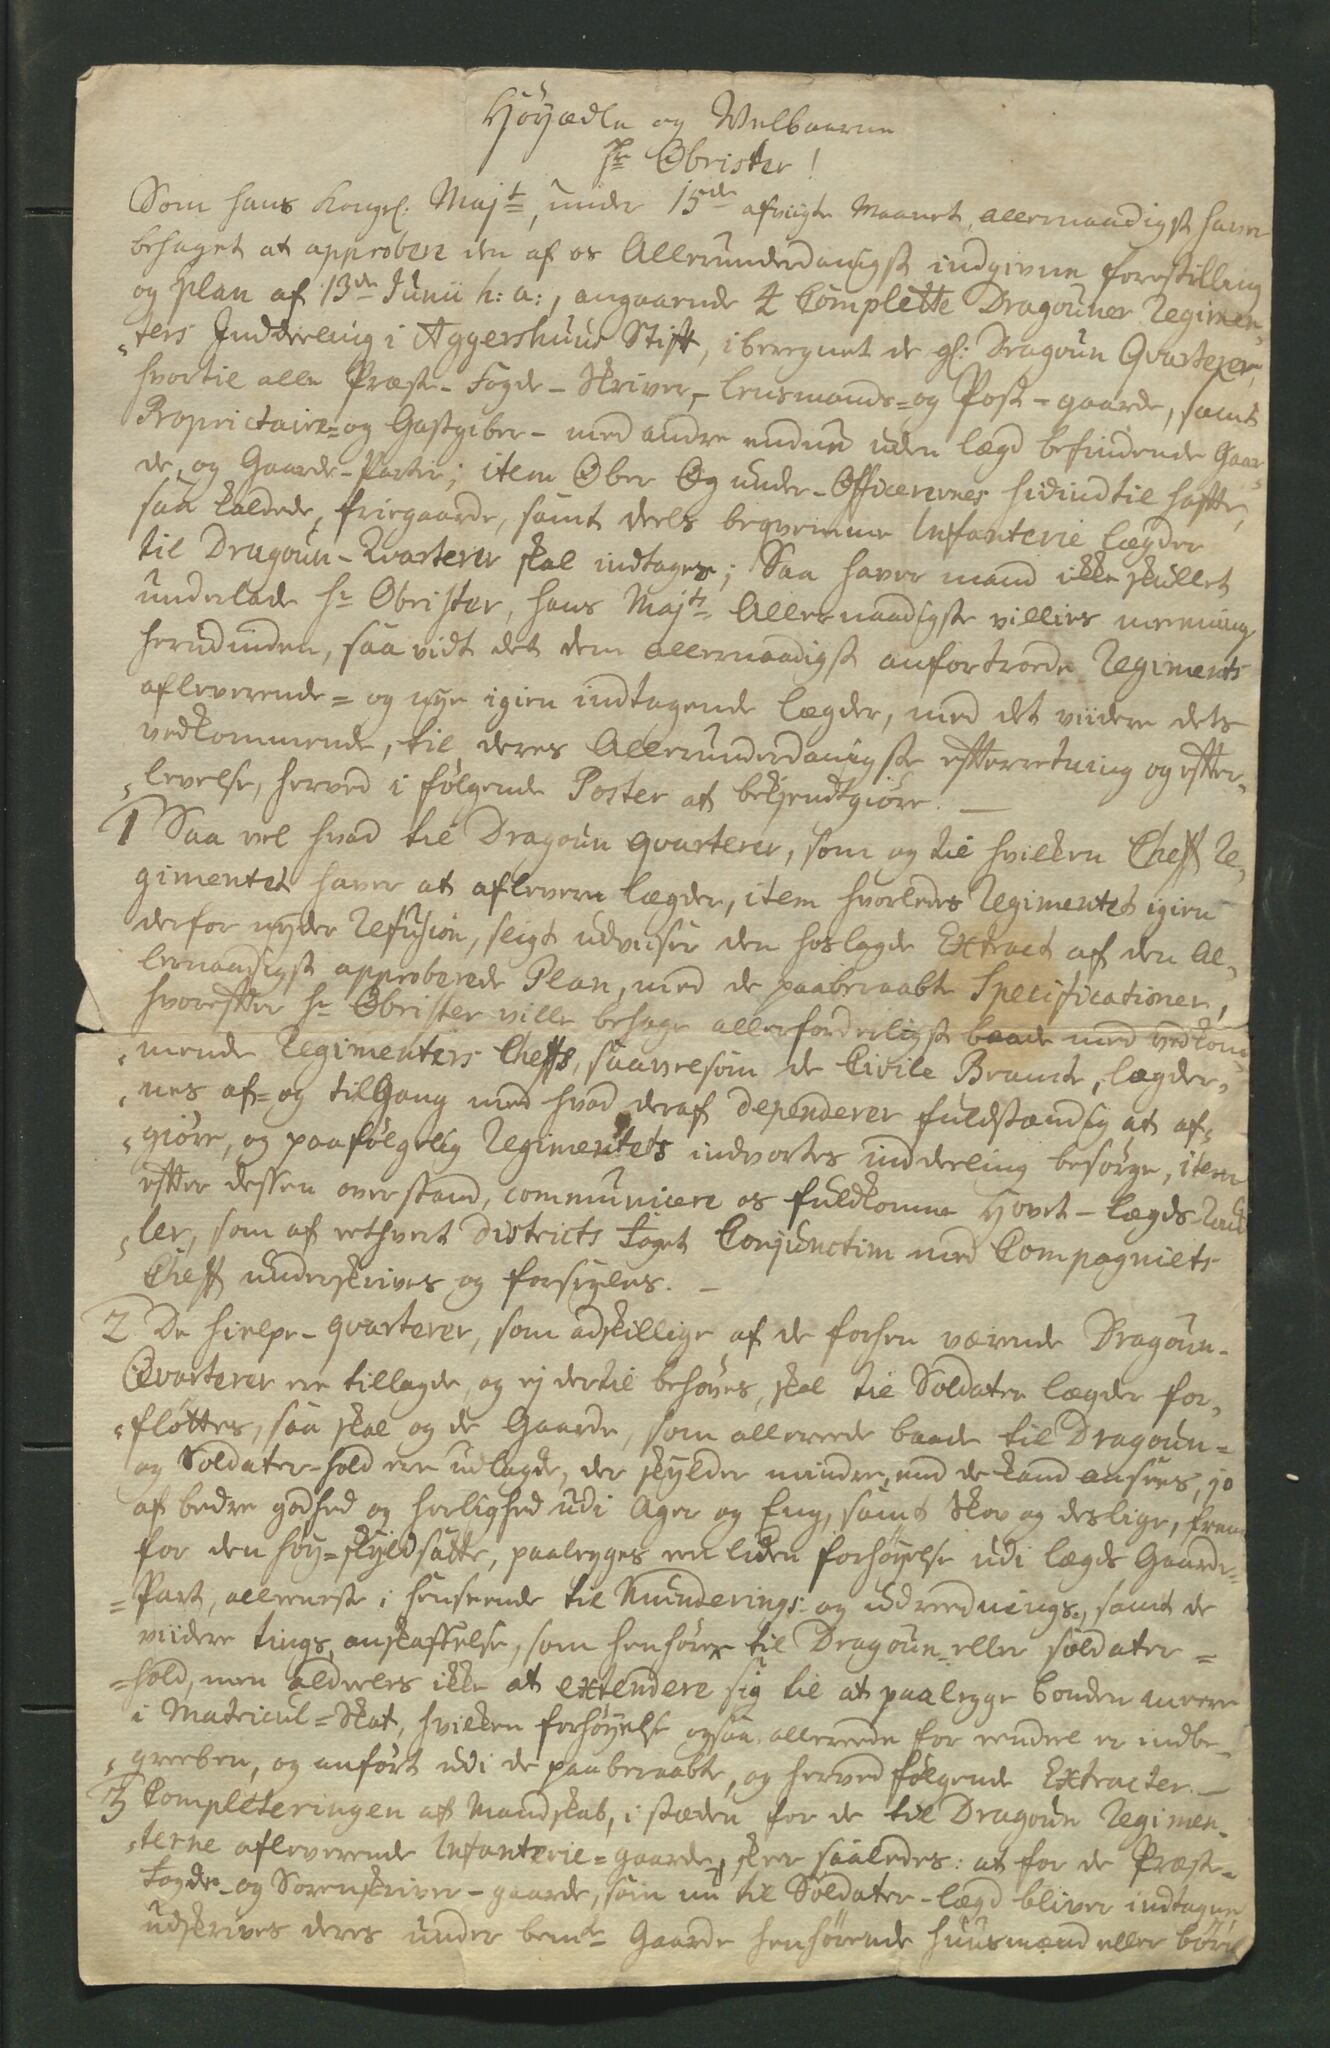 Höyædle og Welbaarne
Hr Obrister!
Som hans Kongl: Majt, under 15de afvigte Maanet, allernaadigst haver
behaget at approbere den af os Allerunderdanigst indgivne forestilling
og plan af 13de Junii h: a:, angaaende 4 Complette Dragouner Regimen„
„ters Inddeeling i Aggershuus Stift, iberegnet de gl: Dragoun Qvarterer,
hvortil alle Præste- Fogde- Skriver- Lensmands- og Post-gaarde, samt
Proprietaire- og Gastgiber- med andre endnu uden lægd befindende Gaar„
de, og Gaarde-Parter; item Ober Og under-Officerernes hidindtil hafte,
saa kaldede, friegaarde, samt deels beqvemme Infanterie lægder
til Dragoun-Qvarterer skal indtages; Saa haver mand ikke skullet
underlade Hr Obrister, hans Majts Allernaadigste villies meening
herudinden, saa vidt det dem allernaadigst anfortroede Regiments
afleverende- og nye igien indtagende lægder, med det viidere dets
vedkommende, til deres Allerunderdanigste efterretning og efter„
„levelse, herved i følgende Poster at bekjendtgiøre. —
1 Saa vel hvad til Dragoun qvarterer, som og til hvilken Cheff Re„
gimentet haver at aflevere lægder, item hvorledes Regimentet igien
derfor nyder Refusion, sligt udviser den hoslagde Extract af den al„
lernaadigst approberede Plan, med de paaberaabte Specificationer,
hvorefter Hr Obrister ville behage allerforderligst baade med vedkom„
„mende Regimenters Cheffs, saavelsom de Civile Beamte, lægder„
„nes af- og tilGang med hvad deraf dependerer fuldstændig at af„
„giøre, og paafølgelig Regimentets indvortes inddeeling besørge, item
efter dessen overstand, communicere os fuldkomne Hovet-lægds-Rul
„ler, som af ethvert Districts Foget Conjunctim med Compagniets
Cheff underskrives og forsegles. —
2 De hielpe-qvarterer, som adskillige af de forhen værende Dragoun-
Qvarterer ere tillagde, og ej dertil behøves, skal til Soldater lægder for„
„fløttes, saa skal og de Gaarde, som allereede baade til Dragoun-
og Soldater-hold ere udlagde, der skylder mindre, end de kand ansees, jo
af bedre godhed og herlighed udi Ager og Eng, samt Skov og deslige, frem
for den høy-skyldsatte, paalegges een liden forhøyelse udi lægds Gaarde-
-Part, alleeneste i henseende til Munderings- og udreednings, samt de
viidere tings anskaffelse, som henhører til Dragoun- eller soldater-
-hold, men aldeeles ikke at extendere sig til at paalegge bonden meere
i Matricul-Skat, hvilken forhøyelse ogsaa allereede for eendeel er indbe„
„greeben, og anført udi de paaberaabte, og herved følgende Extracter. —
3 Completeringen af Mandskab, i stæden for de til Dragoun Regimen„
„terne afleverende Infanterie-gaarder, skeer saaledes: at for de Præste-
Fogde- og Sorenskriver-gaarde, som nu til Soldater-lægd bliver indtagne,
udskrives deres under bemte Gaarde henhørende huusmænd eller børn